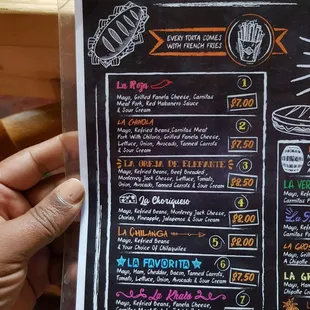 EVERY TORTA COMES
WITH FRENCH FRIES
La Roja
1
Mayo, Grilled Panela Cheese, Carnitas
Meat Pork, Red Habanero Sauce
& Sour Cream
$7.00
LA CHINOLA
2
Mayo, Refried Beans, Carnitas Meat
Pork With Chilorio, Grilled Panela Cheese,
Lettuce, Onion, Avocado, Tanned Carrots
& Sour Cream
$7.50
LA OREJA DE ELEFANTE
3
Mayo, Refried Beans, Beef Breaded,
Monterey Jack Cheese, Lettuce, Tomato,
Onion, Avocado, Tanned Carrots & Sour Cream
$8.50
La Choriqueso
4
Mayo, Refried Beans, Monterey Jack Cheese,
Chorizo, Pineapple, Jalapenos & Sour Cream
$8.00
La Chilanga
5
Mayo, Refried Beans
& Your Choice Of Chilaquiles
$8.00
LA FAVORITA
6
Mayo, Ham, Cheddar, Bacon, Tanned Carrots,
Tomato, Lettuce, Onion, Avocado & Sour Cream
$7.50
La Khalo
7
Mayo, Grilled Panela Cheese,
LA VER
Mayo, Refri
Carnitas
LA GROS
LA GR